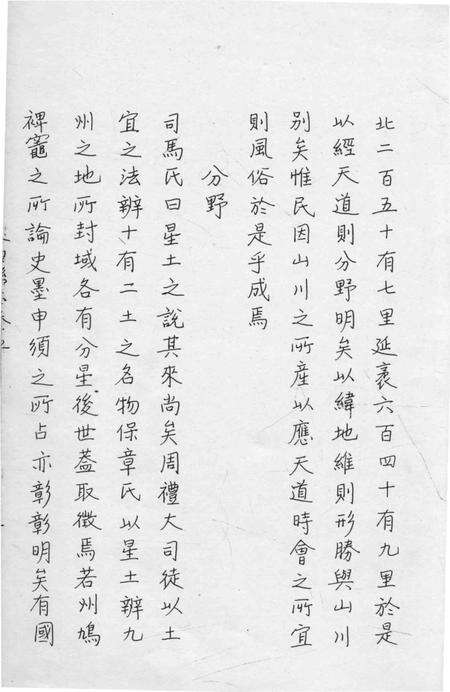 北二百五十有七里延袤六百四十有九里於是
以經天道則分野明矣以緯地維則形勝與山川
別矣惟民因山川之所產以應天道時會之所宜
則風俗於是乎成焉
分野
司馬氏曰星土之說其來尚矣周禮大司徒以土
宜之法辦十有二土之名物保章氏以星土辦九
州之地所封域各有分星後世蓋取徵焉若州鳩
裨竈之所論史墨申須之所占亦彰彰明矣有國